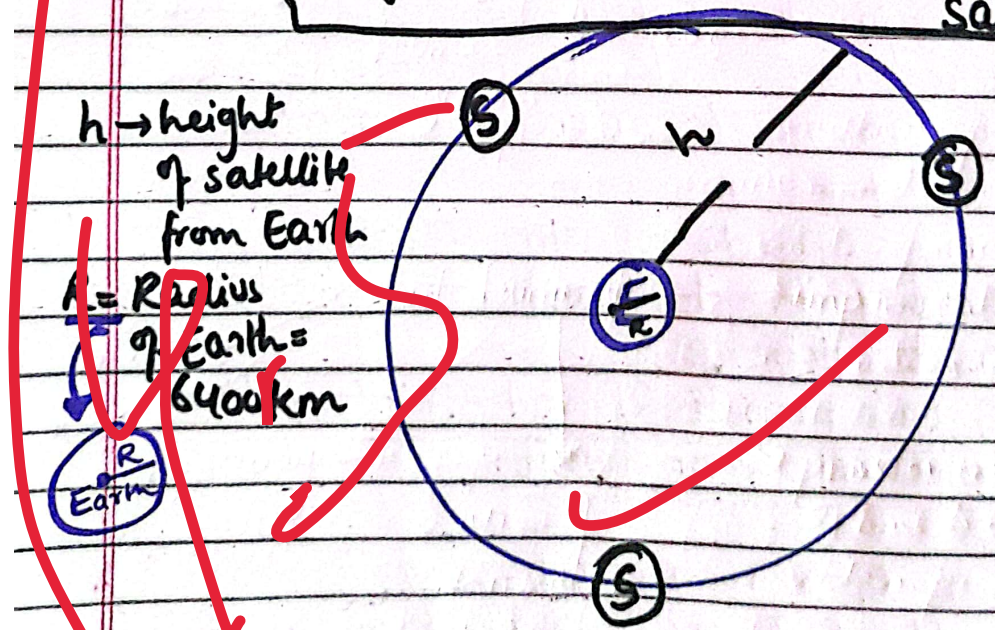 Sa
h → height
of satellite
from Earth
R = Radius
of Earth =
6400 km
R
Earth
S
S
h
E
R
S